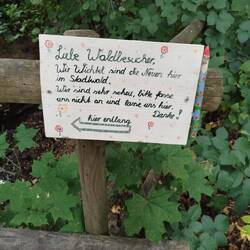 Liebe Waldbesucher,
Wir Wichtel sind die Neuen hier
im Stadtwald.
Wir sind sehr scheu, bitte fasse
uns nicht an und lasse uns hier.
Danke!
hier entlang